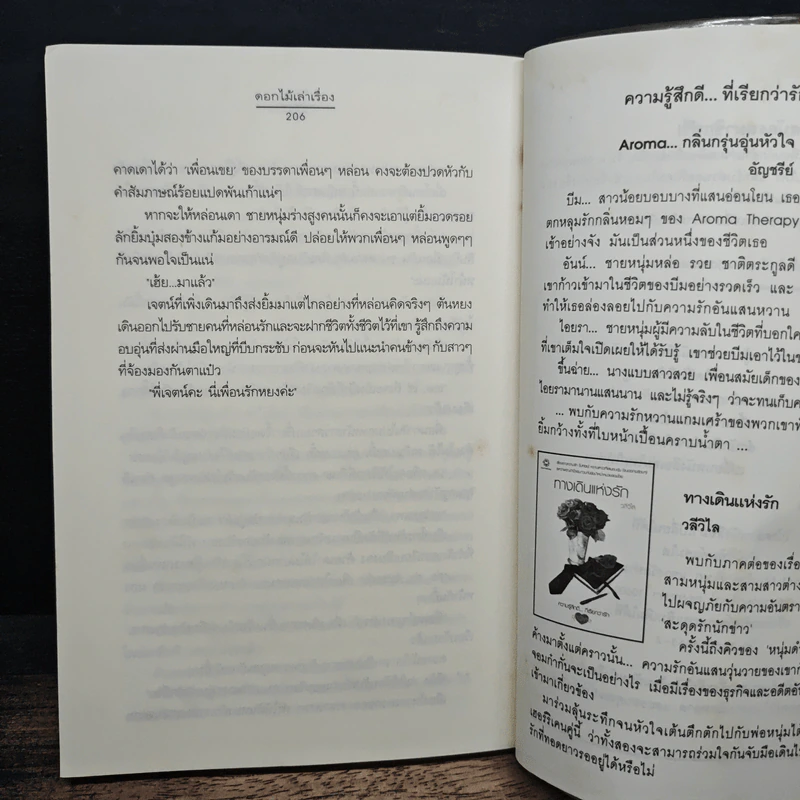 ดอกไม้เล่าเรื่อง
206
คาดเดาได้ว่า 'เพื่อนเขย' ของบรรดาเพื่อนๆ หล่อน คงจะต้องปวดหัวกับ
คำสัมภาษณ์ร้อยแปดพันเก้าแน่ๆ
หากจะให้หล่อนเดา ชายหนุ่มร่างสูงคนนั้นก็คงจะเอาแต่ยิ้มอวดรอย
ลักยิ้มบุ๋มสองข้างแก้มอย่างอารมณ์ดี ปล่อยให้พวกเพื่อนๆ หล่อนพูดๆๆ
กันจนพอใจเป็นแน่
"เฮ้ย...มาแล้ว"
เจตน์ที่เพิ่งเดินมาถึงส่งยิ้มมาแต่ไกลอย่างที่หล่อนคิดจริงๆ ต้นหยง
เดินออกไปรับชายคนที่หล่อนรักและจะฝากชีวิตทั้งชีวิตไว้ที่เขา รู้สึกถึงความ
อบอุ่นที่ส่งผ่านมือใหญ่ที่บีบกระชับ ก่อนจะหันไปแนะนำคนข้างๆ กับสาวๆ
ที่จ้องมองกันตาแป๋ว
"พี่เจตน์คะ นี่เพื่อนรักหยงค่ะ"
ความรู้สึกดี... ที่เรียกว่ารัก
Aroma... กลิ่นกรุ่นอุ่นหัวใจ
อัญชรีย์
บีม... สาวน้อยบอบบางที่แสนอ่อนโยน เธอ
ตกหลุมรักกลิ่นหอมๆ ของ Aroma Therapy
เข้าอย่างจัง มันเป็นส่วนหนึ่งของชีวิตเธอ
อันน์... ชายหนุ่มหล่อ รวย ชาติตระกูลดี
เขาก้าวเข้ามาในชีวิตของบีมอย่างรวดเร็ว และ
ทำให้เธอล่องลอยไปกับความรักอันแสนหวาน
ไอยรา... ชายหนุ่มผู้มีความลับในชีวิตที่บอกใค
ที่เขาเต็มใจเปิดเผยให้ได้รับรู้ เขาช่วยบีมเอาไว้ใน
ขึ้นฉ่าย... นางแบบสาวสวย เพื่อนสมัยเด็กของ
ไอยรามานานแสนนาน และไม่รู้จริงๆ ว่าจะทนเก็บค
... พบกับความรักหวานแกมเศร้าของพวกเขาทั
ยิ้มกว้างทั้งที่ใบหน้าเปื้อนคราบน้ำตา ...
ทางเดินแห่งรัก
วลีวิไล
ความรู้สึกดี... ที่เรียกว่ารัก
ทางเดินแห่งรัก
วลีวิไล
พบกับภาคต่อของเรื่อ
สามหนุ่มและสามสาวต่าง
ไปผจญภัยกับความอันตรา
'สะดุดรักนักข่าว'
ครั้งนี้ถึงคิวของ 'หนุ่มดำ
ค้างมาตั้งแต่คราวนั้น... ความรักอันแสนวุ่นวายของเขาก
จอมกำกั่นจะเป็นอย่างไร เมื่อมีเรื่องของธุรกิจและอดีตอั
เข้ามาเกี่ยวข้อง
มาร่วมลุ้นระทึกจนหัวใจเต้นตึกตักไปกับพ่อหนุ่มได
เฮอร์ริเคนคู่นี้ ว่าทั้งสองจะสามารถร่วมใจกันจับมือเดินไ
รักที่ทอดยาวรออยู่ได้หรือไม่